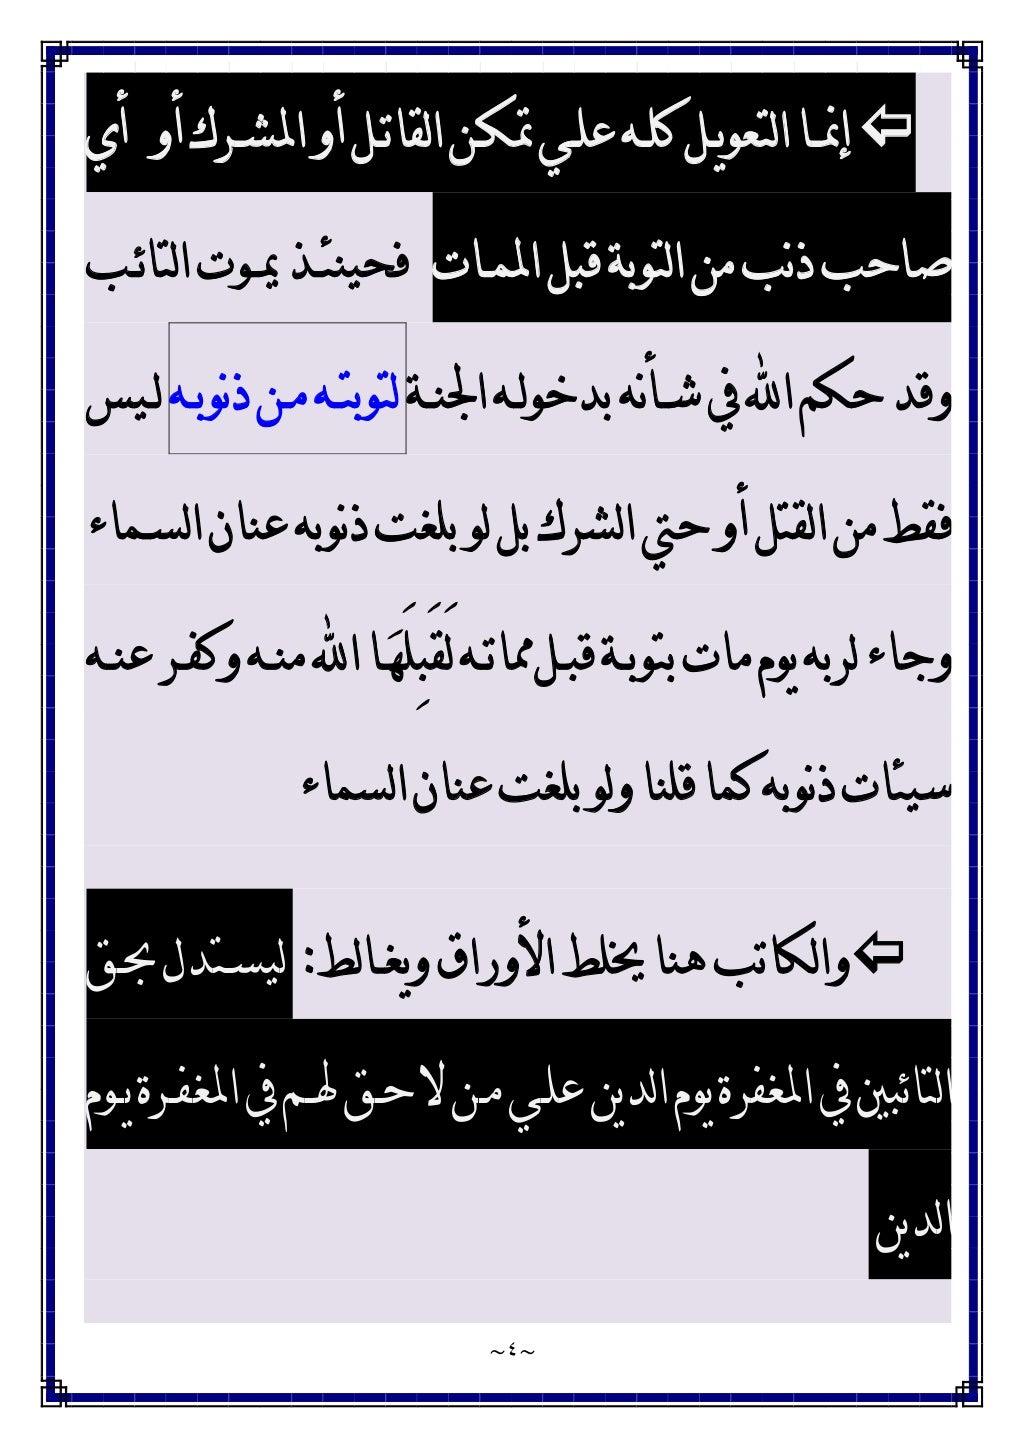 ⇦ إنما التعويل كله علي تمكن القاتل أو المشرك أو أي
صاحب ذنب من التوبة قبل الممات فحينئذ يموت التائب
وقد حكم الله في شأنه بدخوله الجنة لتوبته من ذنوبه ليس
فقط من القتل أو حتي الشرك بل لو بلغت ذنوبه عنان السماء
وجاء لربه يوم مات بتوبة قبل مماته لَقَبِلَهَا الله منه وكفر عنه
سيئات ذنوبه كما قلنا ولو بلغت عنان السماء
⇦ والكاتب هنا يخلط الأوراق ويغالط: ليستدل بحق
التائبين في المغفرة يوم الدين علي من لا حق لهم في المغفرة يوم
الدين
~٤~